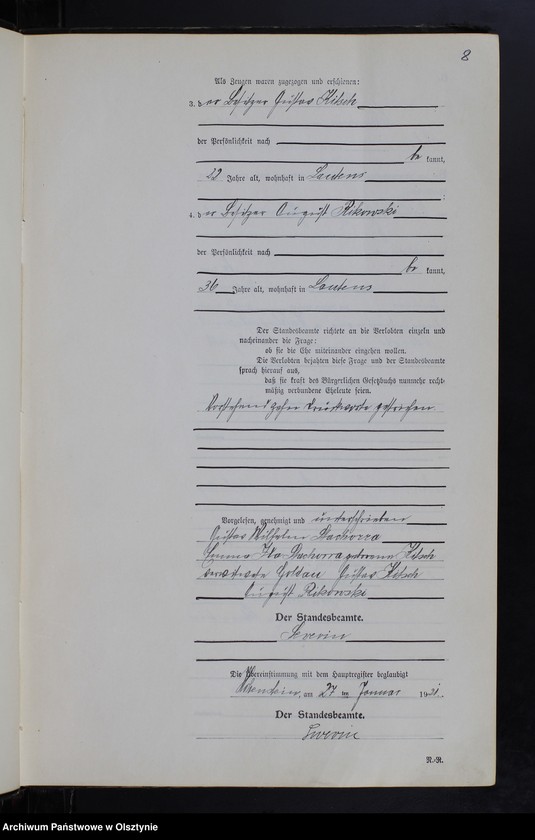 8
Als Zeugen waren zugezogen und erschienen:
3. der Besitzer Gustav Kitsch
der Persönlichkeit nach
be kannt,
22 Jahre alt, wohnhaft in Lautens
;
4. der Besitzer August Rikowski
der Persönlichkeit nach
be kannt,
36 Jahre alt, wohnhaft in Lautens
Der Standesbeamte richtete an die Verlobten einzeln und
nacheinander die Frage:
ob sie die Ehe miteinander eingehen wollen.
Die Verlobten bejahten diese Frage und der Standesbeamte
sprach hierauf aus,
daß sie kraft des Bürgerlichen Gesetzbuchs nunmehr recht-
mäßig verbundene Eheleute seien.
Vorstehend zehn Druckworte gestrichen
Vorgelesen, genehmigt und unterschrieben
Gustav Wilhelm Dachorra
Emma Ida Dachorra geborene Kitsch
verwitwete Goldau Gustav Kitsch
August Rikowski
Der Standesbeamte.
Die Übereinstimmung mit dem Hauptregister beglaubigt
am 27 ten Januar 1931
Der Standesbeamte.
N.-R.
Archiwum Państwowe w Olsztynie